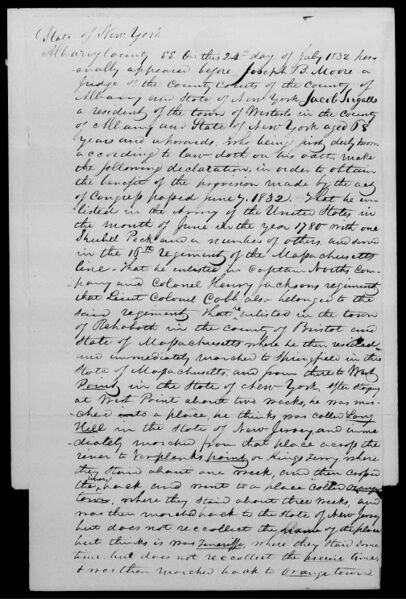 State of New York
Albany County SS On this 24th day of July 1832 pers
onally appeared before Joseph B. Moore a
Judge of the County Courts of the County of
Albany and State of New York Jacob Ingalls
a resident of the town of Westerlo in the County
of Albany and State of New York aged 68
Years and upwards. who being first duly sworn
according to law doth on his oath, make
the following declaration, in order to obtain
the benefit of the provision made by the act
of Congress passed june 7. 1832. That he en
listed in the Army of the United States in
the month of June in the year 1780 with one
Peck and a number of others and served
in the 16th regiment of the Massachusetts
line. That he enlisted in Captain Norths Com
pany and Colonel Henry Jacksons regiment
that Lieut Colonel Cobb also belonged to the
said regiment, That he enlisted in the town
of Rehoboth in the County of Bristol and
State of Massachusetts where he then resided
and immediately marched to Springfield in the
State of Massachusetts, and from there to West
Point in the State of New York, after staying
at West Point about two weeks, he was mar
ched into a place he thinks was called Long
Hill in the State of New Jersey, and imme
diately marched from that place across the
river to Verplanks point or Kings ferry, where
they staid about one week, and then crossed
back and went to a place called orange
town, where they staid about three weeks, and
was then marched back to the State of New Jersey
but does not reccollect the name of the place
but thinks it was Teneriffe, where they staid some
time but does not reccollect the precise time,
& was then marched back to Orangetown